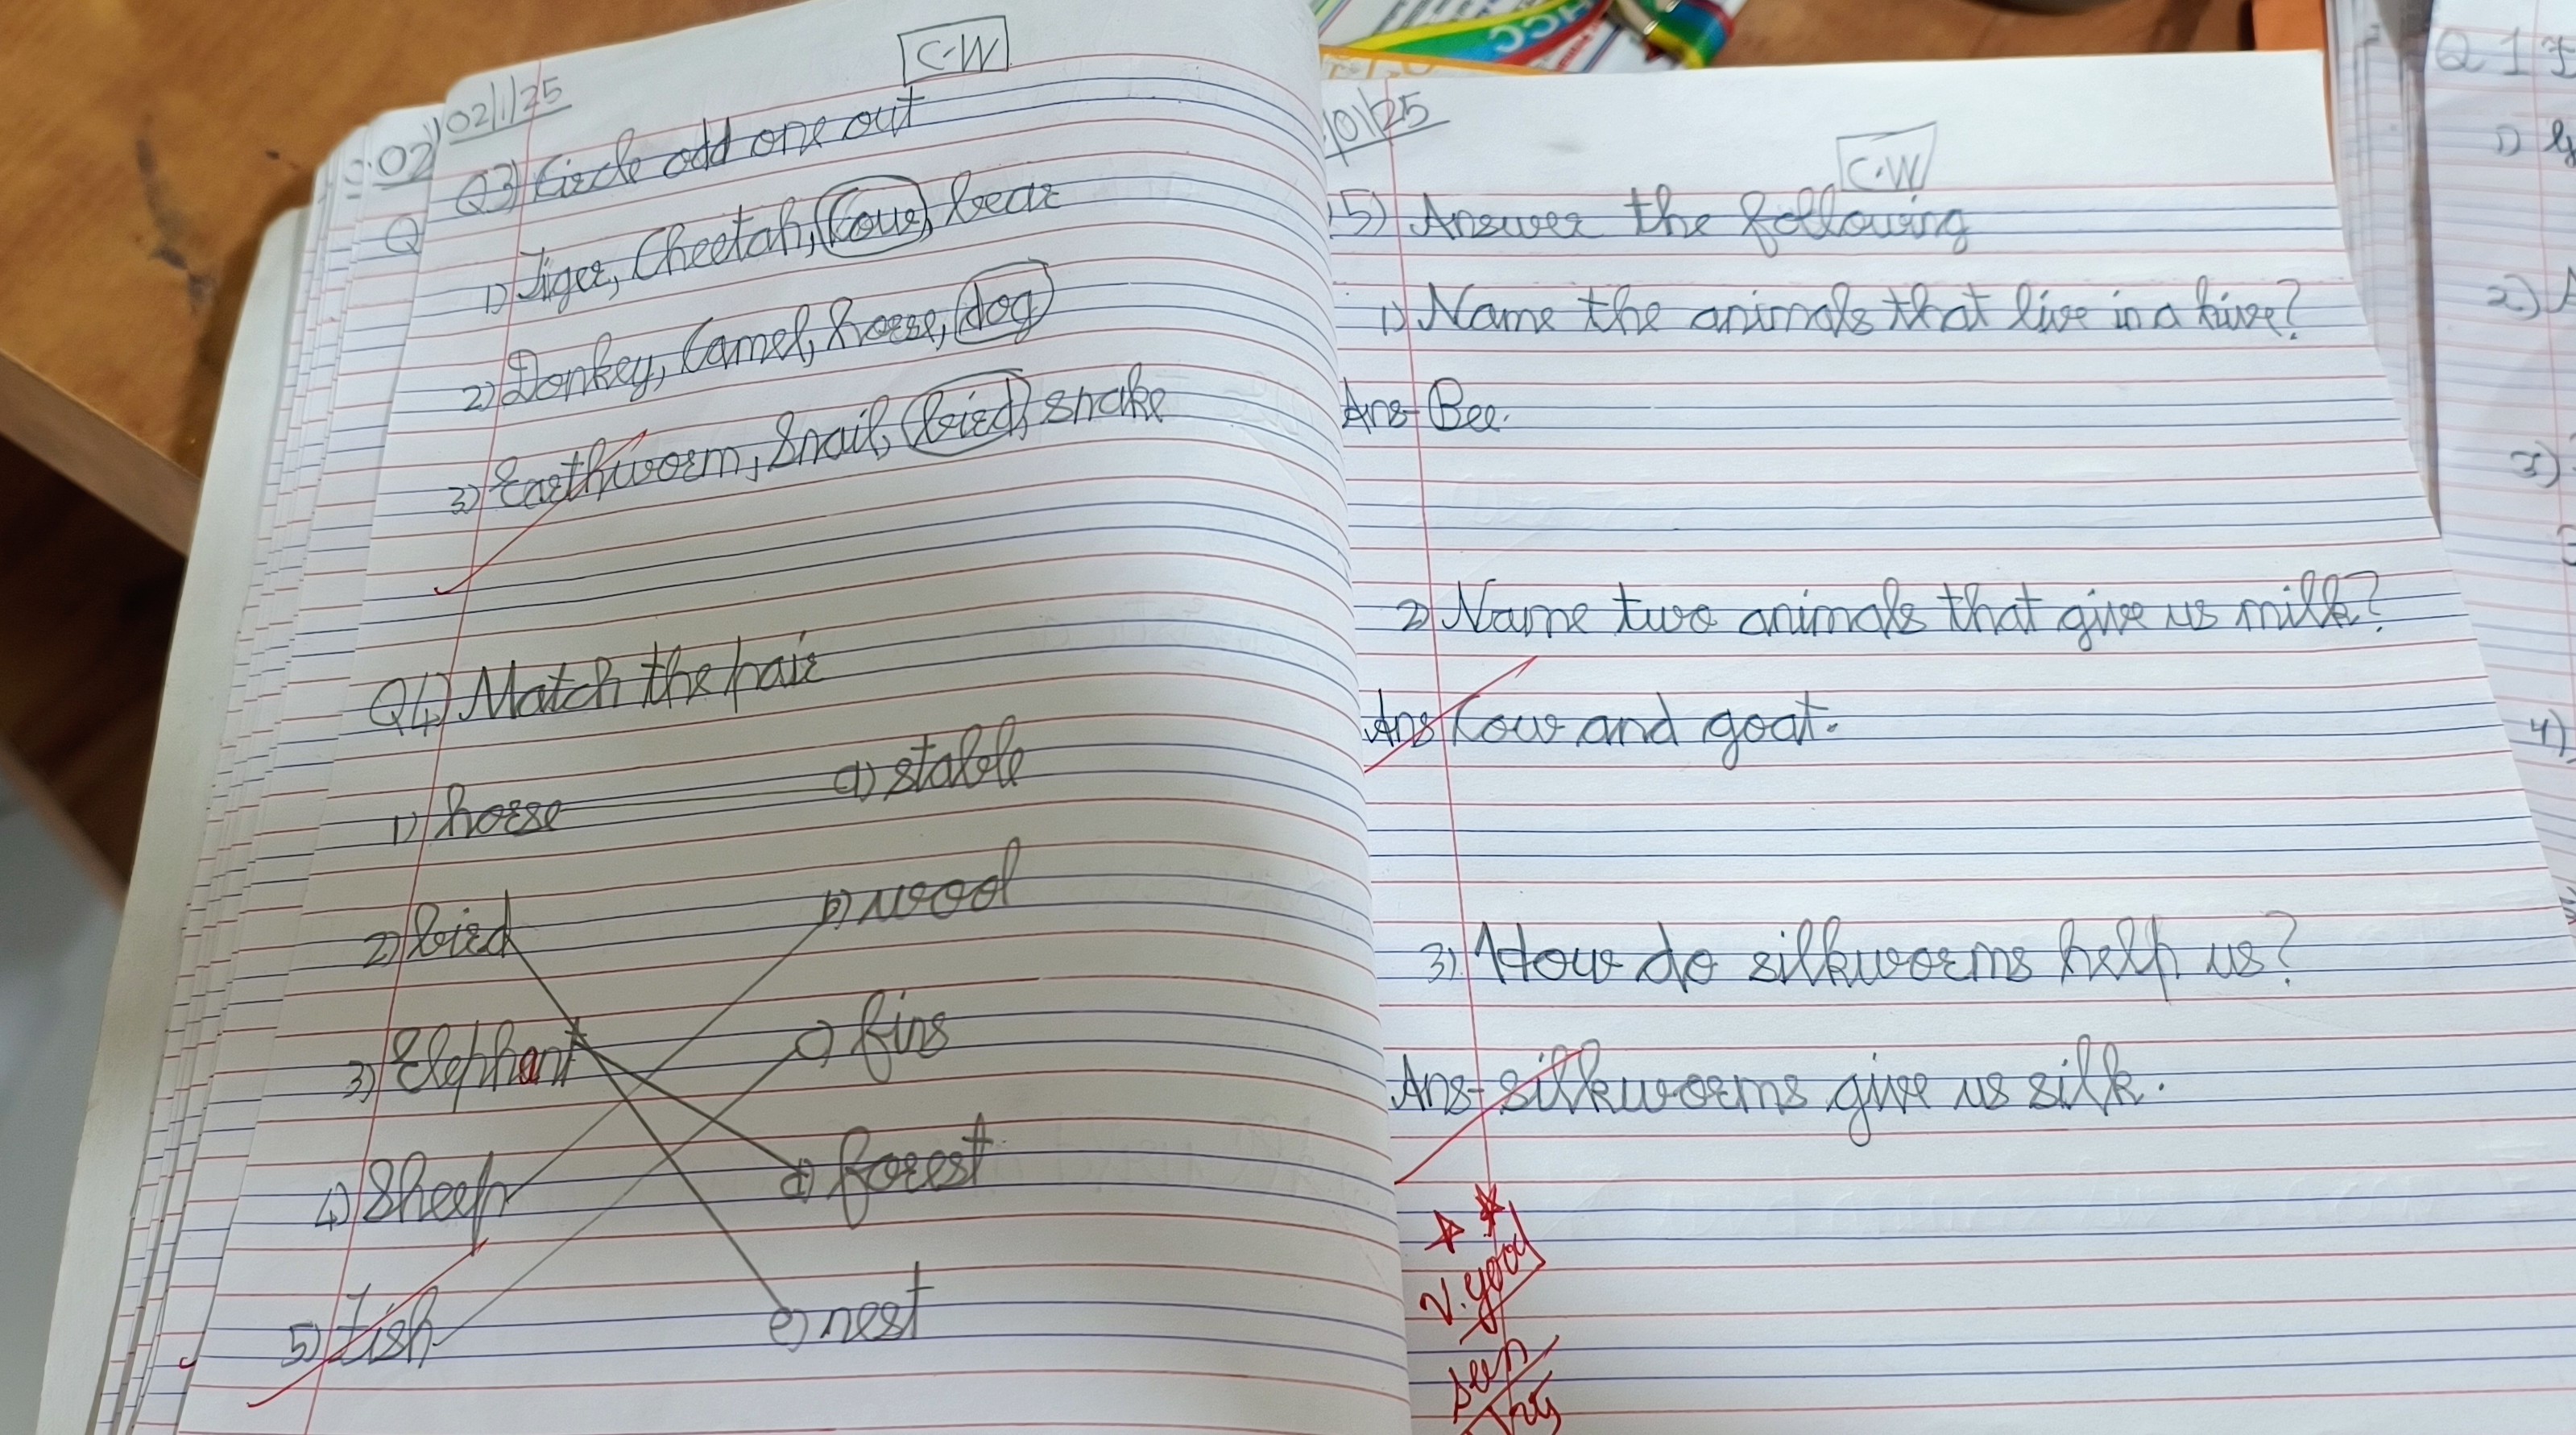 02/1/25
C.W
Q3) Circle odd one out
1) Tiger, Cheetah, Cow, bear
2) Donkey, Camel, horse, dog
3) Earthworm, Snail, bird, snake
Q4) Match the pair
1) horse a) stable
2) bird b) wool
3) Elephant c) fins
4) Sheep d) forest
5) Fish e) nest
02
Q
/01/25
C.W
5) Answer the following
1) Name the animals that live in a hive?
Ans- Bee.
2) Name two animals that give us milk?
Ans Cow and goat.
3) How do silkworms help us?
Ans- silkworms give us silk.
V. good
seen
HCC
Q 1
1)
2) A
3)
4)